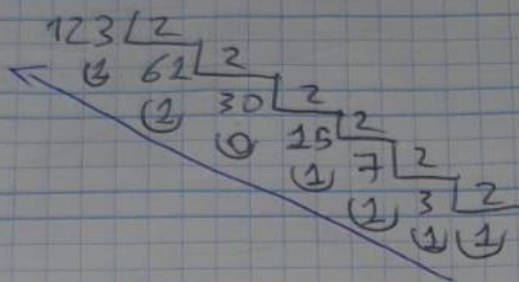 123 2
1 61 2
1 30 2
0 15 2
1 7 2
1 3 2
1 1